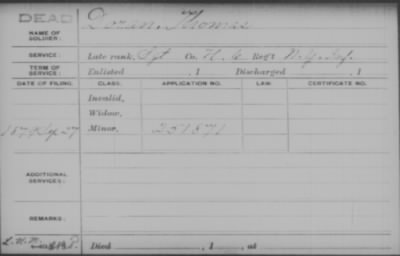 DEAD
NAME OF SOLDIER: Doran, Thomas
SERVICE: Late rank, Sgt Co. H. 6 Reg't N.Y. Inf.
TERM OF SERVICE: Enlisted , 1 Discharged , 1
DATE OF FILING. CLASS. APPLICATION NO. LAW. CERTIFICATE NO.
Invalid,
Widow,
187 Sep 27 Minor, 251871
ADDITIONAL SERVICES:
REMARKS:
Died , 1 , at